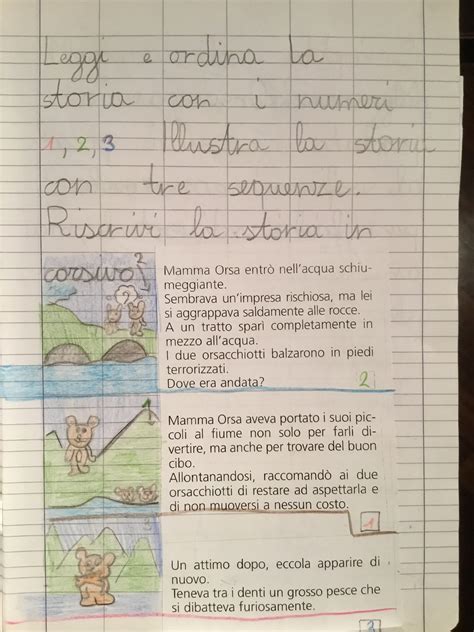 Leggi e ordina la
storia con i numeri
1, 2, 3 Illustra la storia
con tre sequenze.
Riscrivi la storia in
corsivo
2
?
Mamma Orsa entrò nell'acqua schiu-
meggiante.
Sembrava un'impresa rischiosa, ma lei
si aggrappava saldamente alle rocce.
A un tratto sparì completamente in
mezzo all'acqua.
I due orsacchiotti balzarono in piedi
terrorizzati.
Dove era andata?
2
1
Mamma Orsa aveva portato i suoi pic-
coli al fiume non solo per farli di-
vertire, ma anche per trovare del buon
cibo.
Allontanandosi, raccomandò ai due
orsacchiotti di restare ad aspettarla e
di non muoversi a nessun costo.
1
3
Un attimo dopo, eccola apparire di
nuovo.
Teneva tra i denti un grosso pesce che
si dibatteva furiosamente.
3